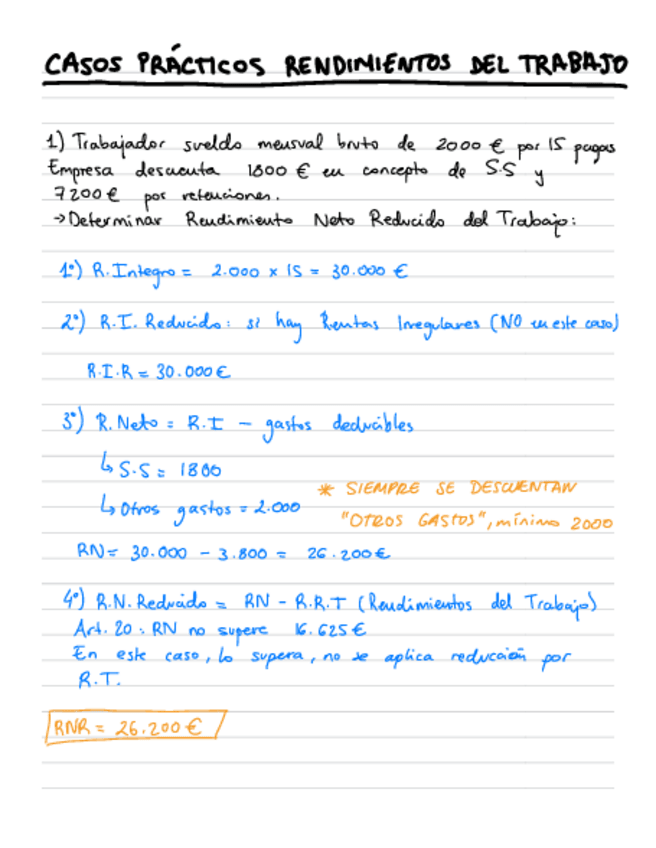 CASOS PRÁCTICOS RENDIMIENTOS DEL TRABAJO
1) Trabajador sueldo mensual bruto de 2000 € por 15 pagas
Empresa descuenta 1800 € en concepto de S.S y
7200 € por retenciones.
→ Determinar Rendimiento Neto Reducido del Trabajo:
1º) R. Integro = 2.000 x 15 = 30.000 €
2º) R.I. Reducido: si hay Rentas Irregulares (NO en este caso)
R.I.R = 30.000 €
3º) R. Neto = R.I - gastos deducibles
↳ S.S = 1800
↳ Otros gastos = 2.000
* SIEMPRE SE DESCUENTAN
"OTROS GASTOS", mínimo 2000
RN = 30.000 - 3.800 = 26.200 €
4º) R.N. Reducido = RN - R.R.T (Rendimientos del Trabajo)
Art. 20: RN no supere 16.625 €
En este caso, lo supera, no se aplica reducción por
R.T.
RNR = 26.200 €